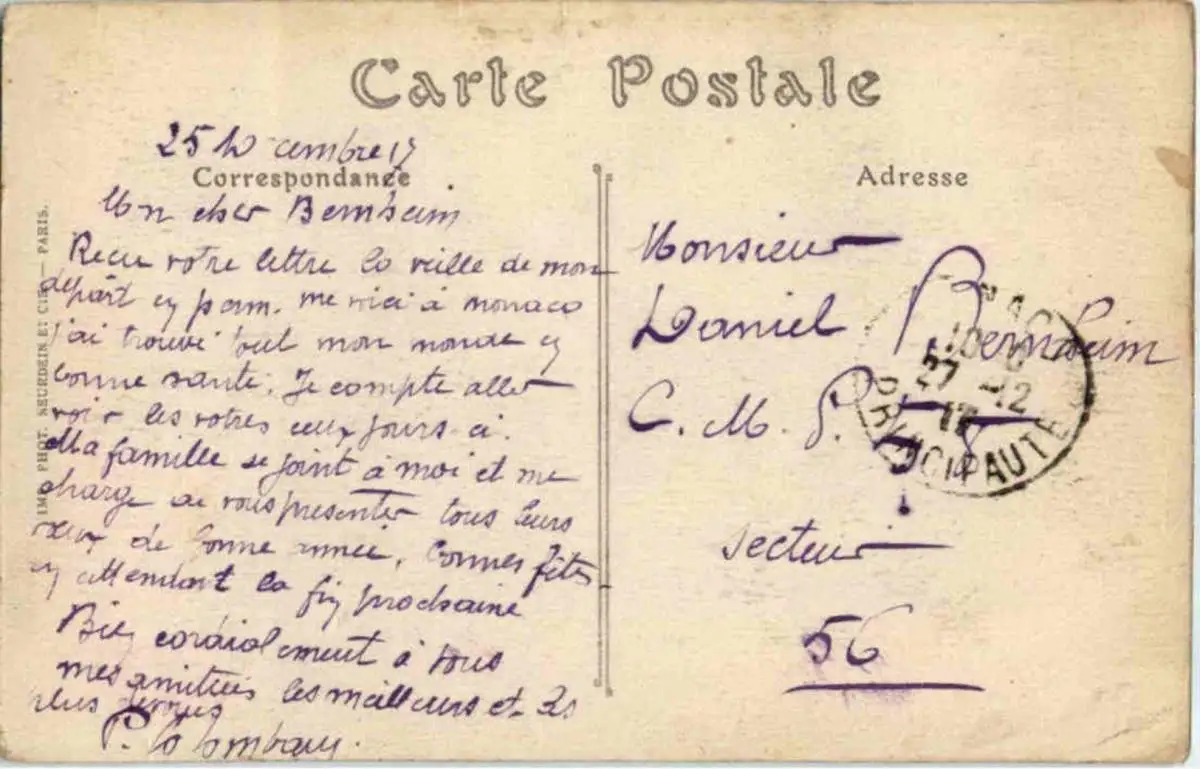 Carte Postale
25 Décembre 17
Correspondance
Mon cher Bernheim
Reçu votre lettre la veille de mon
départ en perm. me voici à monaco
j'ai trouvé tout mon monde en
bonne santé. Je compte aller
voir les votres ceux jours-ci.
Ma famille se joint à moi et me
charge de vous presenter tous leurs
vœux de bonne année, bonnes fêtes
en attendant la fin prochaine
Bien cordialement à vous
mes amitiés les meilleurs et les
plus
P.
IMP. PHOT. NEURDEIN ET CIE. — PARIS.
Adresse
Monsieur
Daniel Bernheim
C. M. P.
secteur
56
27 -12
17
PRINCIPAUTE